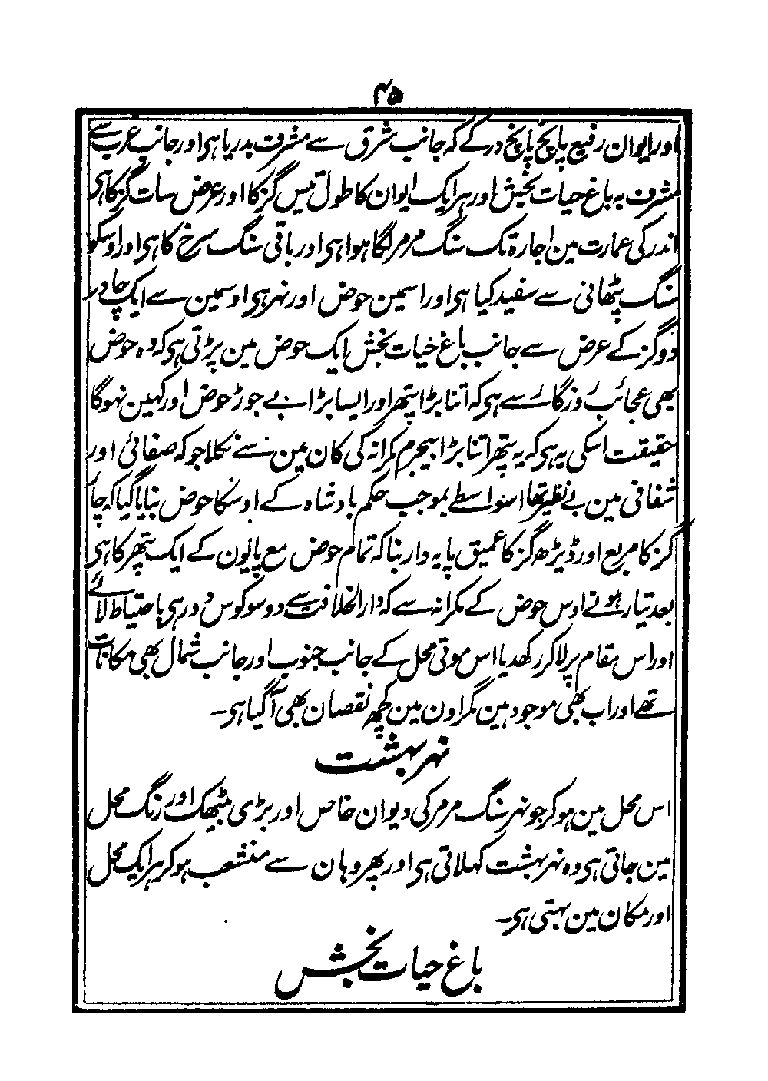 ۴۵
اور ایوان رفیع پانچ پانچ در کے کہ جانب شرق سے مشرف بدریا ہی اور جانب غرب سے
مشرف بہ باغ حیات بخش اور ہر ایک ایوان کا طول تیس گز کا اور عرض سات گز کا ہی
اندر کی عمارت مین اجارہ تک سنگ مرمر لگا ہوا ہی اور باقی سنگ سرخ کا ہی اور اوسکو
سنگ پٹھانی سے سفید کیا ہی اور اسمین حوض اور نہر ہی اوسمین سے ایک چادر
دو گز کے عرض سے جانب باغ حیات بخش ایک حوض مین پڑتی ہی کہ وہ حوض
بھی عجائب روزگار سے ہی کہ اتنا بڑا پتھر اور ایسا بڑا بے جوڑ حوض اور کہین نہوگا
حقیقت اسکی یہ ہی کہ یہ پتھر اتنا بڑا بیجرم مکرانہ کی کان مین سے نکلا جو کہ صفائی اور
شفافی مین بے نظیر تھا اسواسطے بموجب حکم بادشاہ کے اوسکا حوض بنایا گیا کہ چار
گز کا مربع اور ڈیڑھ گز کا عمیق پایہ دار بنا کہ تمام حوض مع پایون کے ایک پتھر کا ہی
بعد تیار ہونے اوس حوض کے مکرانہ سے کہ دار الخلافت سے دو سو کوس دور ہی باحتیاط لائے
اور اس مقام پر لا کر رکھدیا اس موتی محل کے جانب جنوب اور جانب شمال بھی مکانات
تھے اور اب بھی موجود ہین مگر اون مین کچھ نقصان بھی آگیا ہی۔
نہر بہشت
اس محل مین ہو کر جو نہر سنگ مرمر کی دیوان خاص اور بڑی بیٹھک اور رنگ محل
مین جاتی ہی وہ نہر بہشت کہلاتی ہی اور پھر وہان سے منشعب ہو کر ہر ایک محل
اور مکان مین بہتی ہی۔
باغ حیات بخش